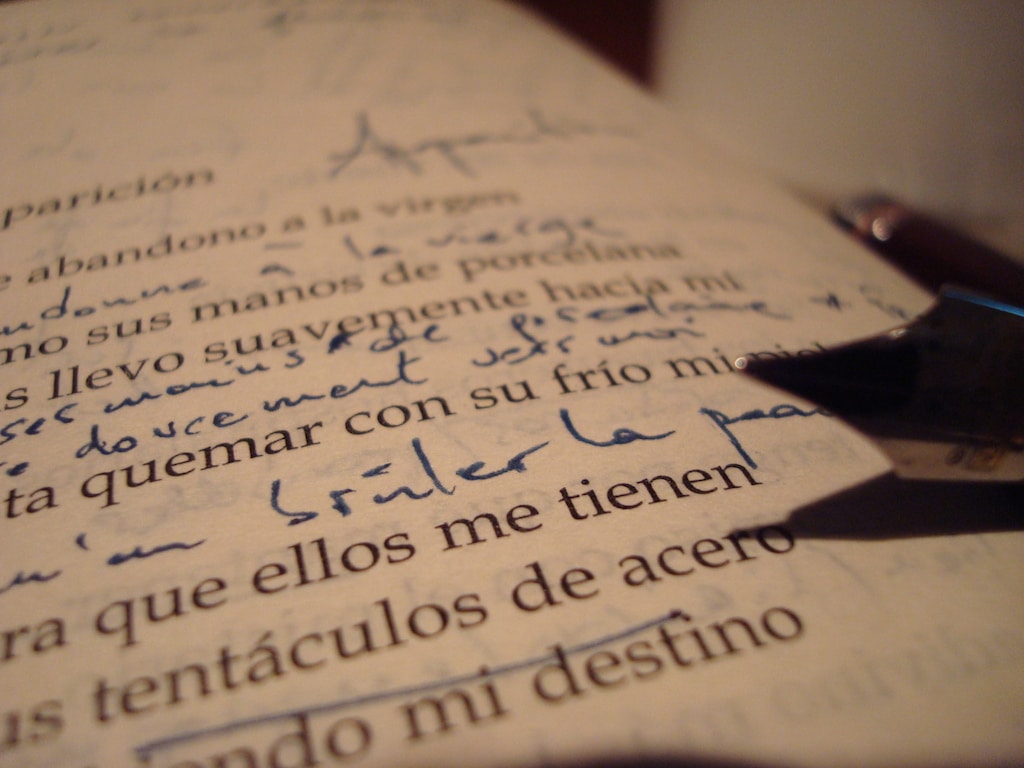 parición
abandono a la virgen
donne à la vierge
mo sus manos de porcelana
s llevo suavemente hacia mi
ses mains de porcelaine
doucement vers moi
ta quemar con su frío mi
brûler la peau
ra que ellos me tienen
us tentáculos de acero
ndo mi destino